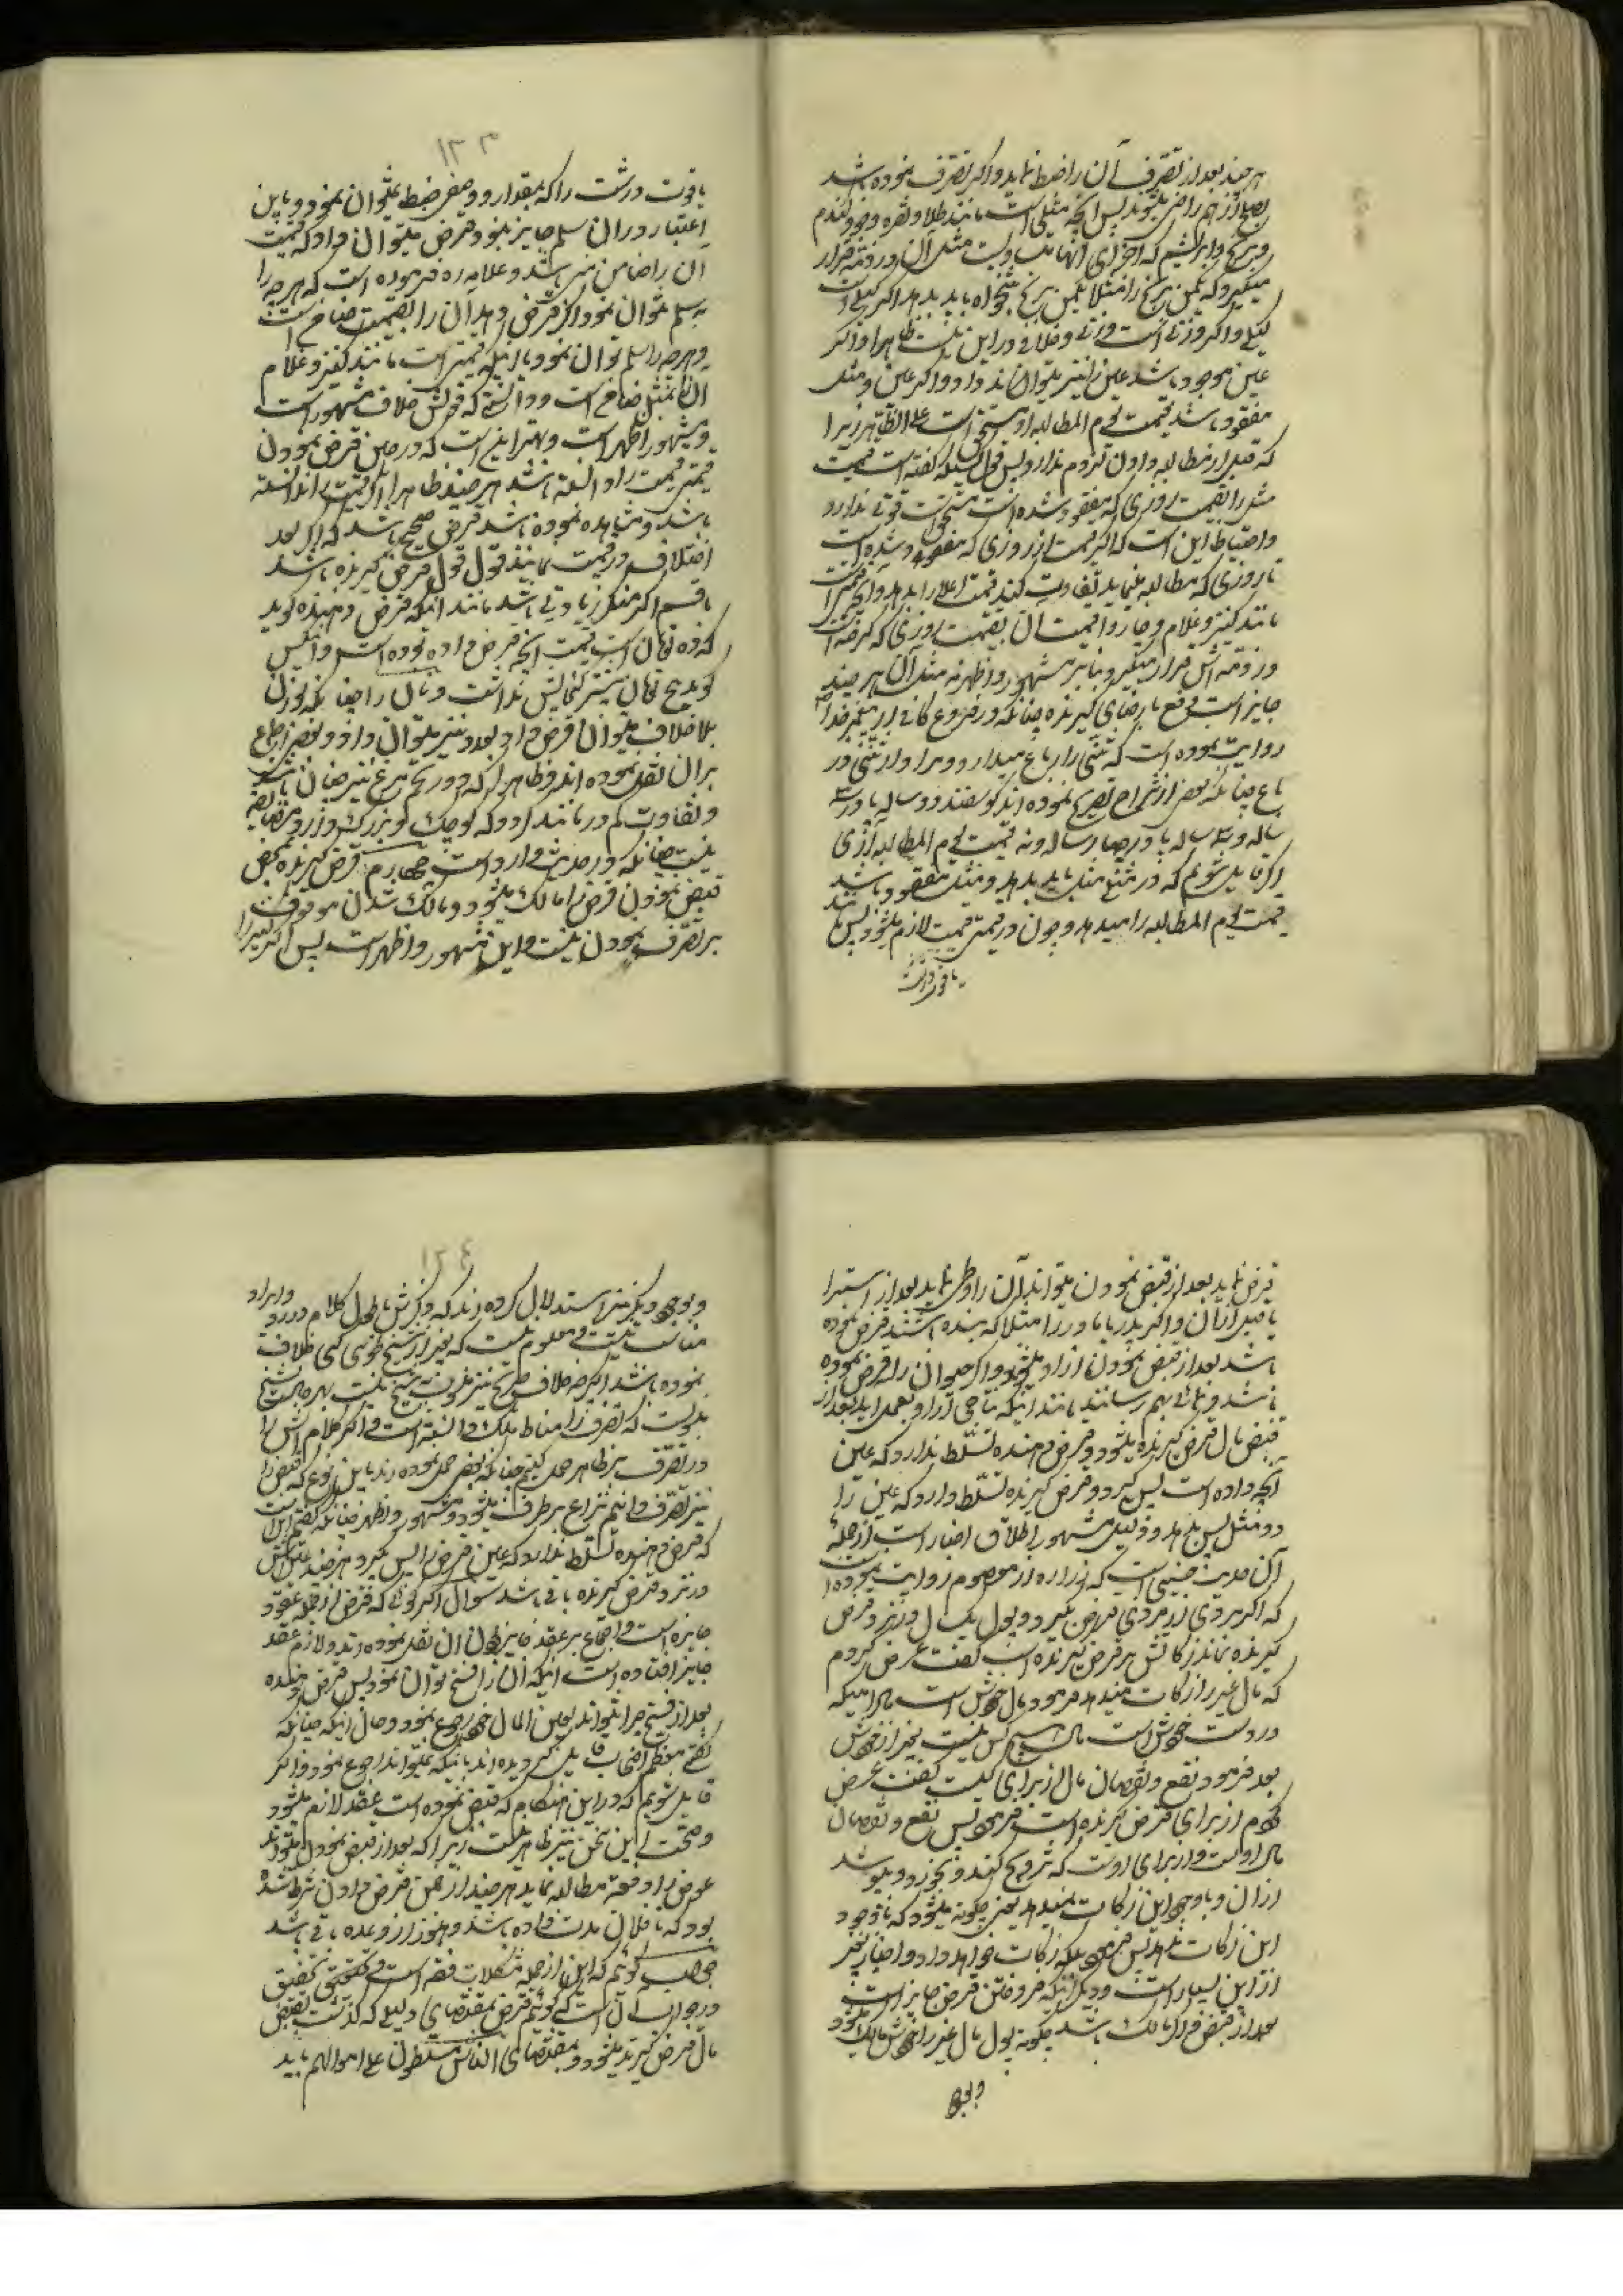 هر چند بعد از تصرف آن را ضبط نماید و اکر تصرف نموده باشد
بصلح از هم راضی میشوند پس آنچه مثلی است مانند طلا و نقره و جو و کندم
و برنج و ابریشم که اجزای آنها مناسب است مثل آن در ذمه قرار
میکیرد که یکمن برنج را مثلا یکمن برنج میخواه باید بدهد اکر کیلی است
کیلی و اکر وزنی است وزنی و خلافی در این نیست ظاهرا و اکر
عین موجود باشد عین را نیز میتواند داد و اکر عین و مثل
مفقود باشد قیمت یوم المطالبه او مستحق است علی الظاهر زیرا
که قبل از مطالبه دادن لزوم ندارد پس قول بکه گفته است قیمت
مثل را بقیمت روزی که مفقود شده است مستحق است قوتی ندارد
و احتیاط این است که اکر قیمت از روزی که مفقود شده است
تا روزی که مطالبه مینماید تفاوت کند قیمت اعلی را بدهد و آنچه قیمتی است
مانند کنیز و غلام و چاروا قیمت آن بقیمت روزی که کرفته است
در ذمه اش قرار میکیرد بنا بر مشهور و اظهر نه مثل آن هر چند
جایز است دفع با رضای کیرنده چنانکه در فروع کافی از پیغمبر خدا ص
روایت نموده است که ثنی را رباع میداد و مراد از ثنی در
باع چنانکه بعضی از شراح تصریح نموده اند کوسفند دو ساله یا در سه
ساله و سه ساله یا در چهار ساله و نه قیمت یوم المطالبه آری
اکر قایل شویم که در مثلی مثل باید بدهد و مثل مفقود باشد
قیمت یوم المطالبه را میدهد و چون در قیمتی قیمت لازم میشود پس مانند
یاقوت درشت
۱۳۳
یاقوت درشت را که بمقدار و وصفی ضبط نمیتوان نمود و باین
اعتبار در آن سلم جایز نبود قرض میتوان داد که قیمت
آن را ضامن می باشد و علامه ره فرموده است که هر چه را
به سلم نتوان نمود اکر قرض دهد آن را بقیمت ضامن است
و هر چه را سلم توان نمود با آنکه قیمتی است مانند کنیز و غلام
آن را بمثل ضامن است و دانستی که قولش خلاف مشهور است
و مشهور اظهر است و بهتر این است که در حین قرض نمودن
قیمتی قیمت را دانسته باشد هر چند ظاهرا اکر قیمت را ندانسته
باشد و مشاهده نموده باشد قرض صحیح باشد که اکر بعد
اختلاف در قیمت نمایند قول قول قرض کیرنده باشد
با قسم اکر منکر زیادتی باشد مانند آنکه قرض دهنده کوید
که ده تومان است قیمت آنچه قرض داده بوده است و آنکس
کوید پنج تومان بیشتر کنجایش نداشت و نان را چنانکه بوزن
بلا خلاف میتوان قرض داد بعدد نیز میتوان داد و بعضی اجماع
بر آن نقل نموده اند و ظاهرا که در تخم مرغ نیز چنان باشد
و تفاوت کم در مانند کردو که کوچک و بزرک و زرد مضایقه
نیست چنانکه در حدیث وارد است چهارم قرض کیرنده بمحض
قبض نمودن قرض را مالک میشود و مالک شدن موقوف
بر تصرف نمودن نیست و این مشهور و اظهر است پس اکر کنیز را
قرض نماید بعد از قبض نمودن میتواند آن را وطی نماید بعد از استبرا
یا قبل از آن و اکر پدر یا مادر را مثلا که بنده باشند قرض نموده
باشد بعد از قبض نمودن آزاد میشود و اکر حیوان را قرض نموده
باشد و نمائی بهم رسانند مانند اینکه نتاجی آرد و بعمل آید بعد از
قبض مال قرض کیرنده میشود و قرض دهنده تسلط ندارد که عین
آنچه داده است پس کیرد و قرض کیرنده تسلط دارد که عین را
دو مثل پس بدهد و دلیل مشهور اطلاق اخبار است از جمله
آن حدیث حسنی است که زراره از معصوم روایت نموده است
که اکر مردی از مردی قرض کیرد و پول یکسال در نزد قرض
کیرنده بماند زکاتش بر قرض کیرنده است گفت عرض کردم
که مال غیر را زکات میدهد فرمود مال خودش است مادامیکه
در دست خودش است مال کسی نیست بغیر از خودش
بعد فرمود نفع و نقصان مال از برای کیست گفت عرض
کردم از برای قرض کیرنده است فرمود پس نفع و نقصان
مال او است و از برای اوست که تزویج کند و بخورد و بپوشد
از آن و با وجود این زکات نمیدهد یعنی چکونه میشود که با وجود
این زکات ندهد پس فرمود بلکه زکات خواهد داد و اخبار غیر
از این بسیار است و دیکر آنکه فروختن قرض جایز است
بعد از قبض و اکر مالک نباشد چکونه پول مال غیر را خودش مالک میشود
و بوجه
۱۳٤
و بوجوه دیکر نیز استدلال کرده اند که ذکرش باطول کلام در رد و ایراد
مناسب نیست و معلوم نیست که بغیر از شیخ طوسی کسی خلاف
نموده باشد اکر چه خلاف صریح نیز معلوم شیخ نیست بهر حال شیخ
بدوست که تصرف را مناط ملک دانسته است و اکر کلامش را
در تصرف بر ظاهر حمل کنیم چنانکه بعضی حمل نموده اند باین نوع که قبض را
نیز تصرف دانیم نزاع بر طرف میشود و مشهور و اظهر چنانکه گفتیم این است
که قرض دهنده تسلط ندارد که عین قرض را پس کیرد هر چند عینش
در نزد قرض کیرنده باقی باشد سؤال اکر کوئی که قرض از جمله عقود
جایزه است و اجماع بر عقد جایز بودن آن نقل نموده اند و لازم عقد
جایز افتاده است اینکه آن را فسخ توان نمود پس قرض دهنده
بعد از فسخ چرا نتواند بعین المال خود رجوع نمود و حال اینکه چنانکه
گفتی معظم اصحاب قایل کردیده اند باینکه نمیتواند رجوع نمود و اکر
قایل شویم که در این هنکام که قبض نموده است عقد لازم میشود
و صحت این سخن نیز ظاهر نیست زیرا که بعد از قبض نمودن میتواند
عوض را دفعة مطالبه نماید هر چند در حین قرض دادن شرط شده
بود که تا فلان مدت داده باشد و هنوز از وعده باقی باشد
جواب کوئیم که این از جمله مشکلات فقه است و تحقیق
در جواب آن است که کوئیم قرض بمقتضای دلیلی که گذشت بقبض
مال قرض کیرنده میشود و بمقتضای الناس مسلطون علی اموالهم باید